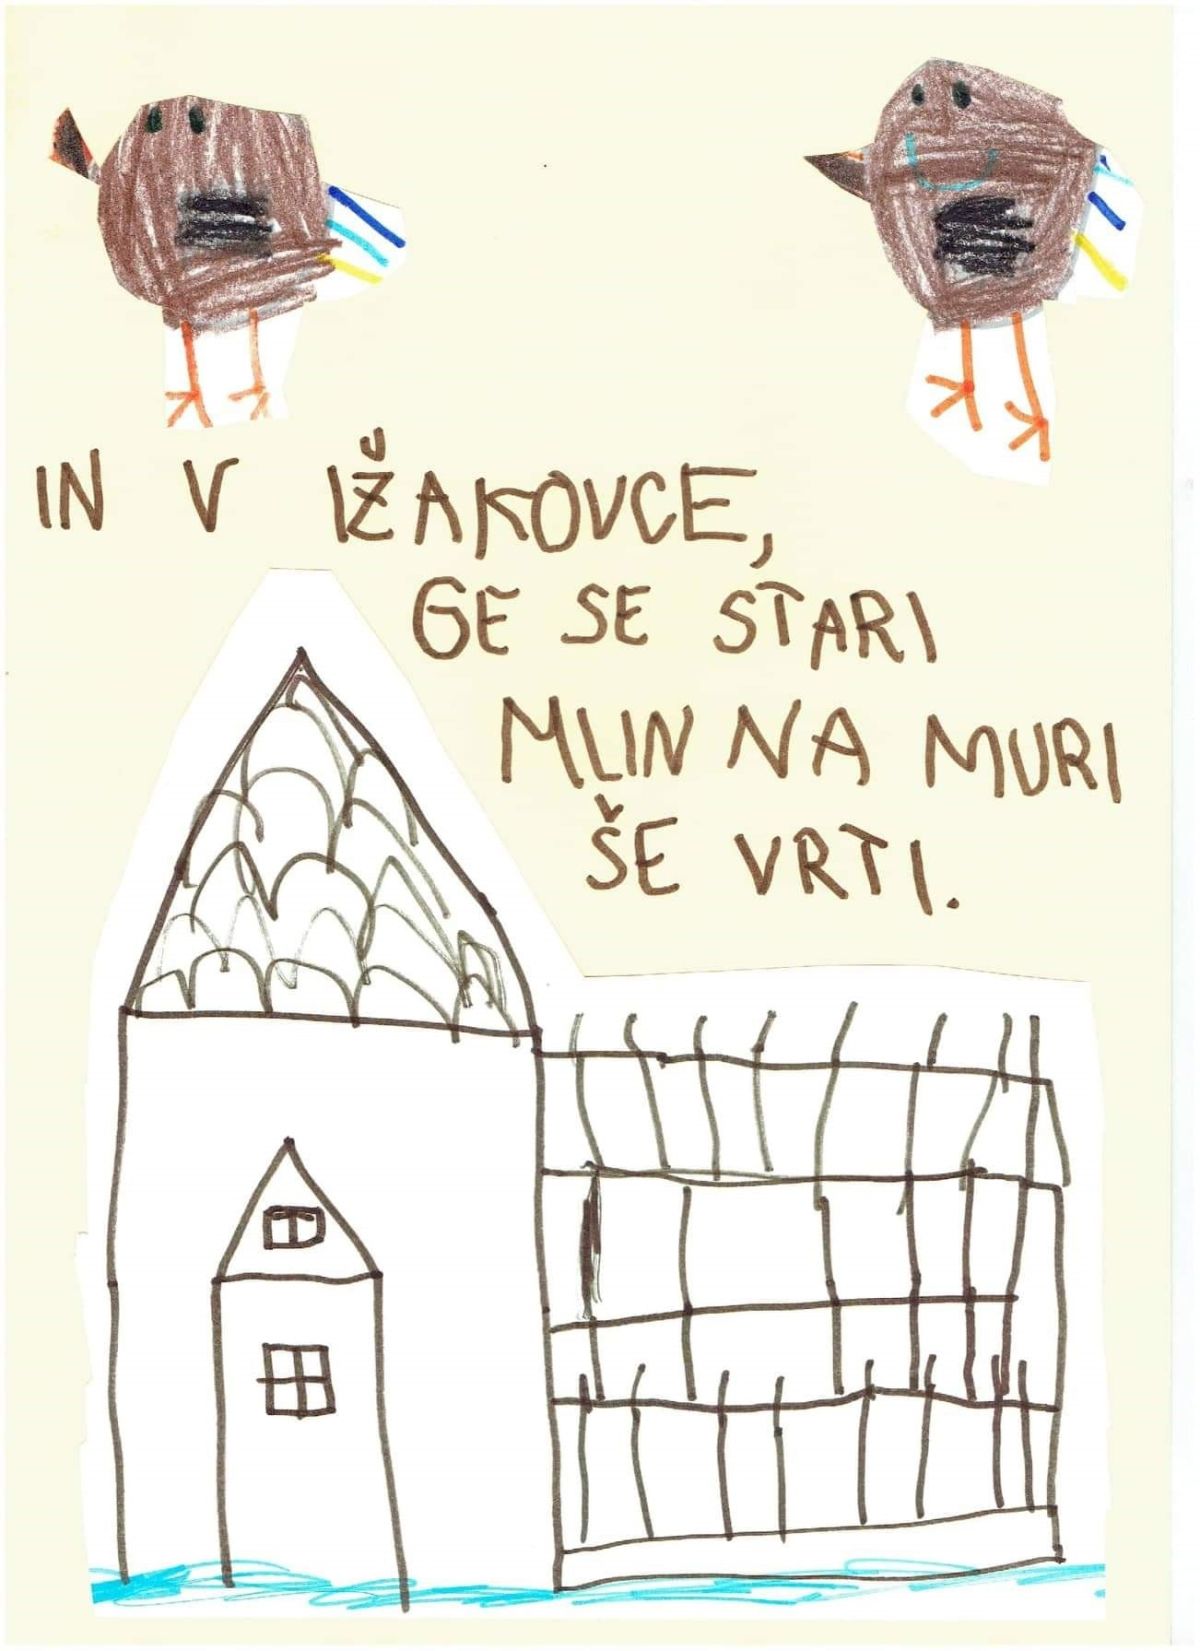 IN V IŽAKOVCE,
GE SE STARI
MLIN NA MURI
ŠE VRTI.